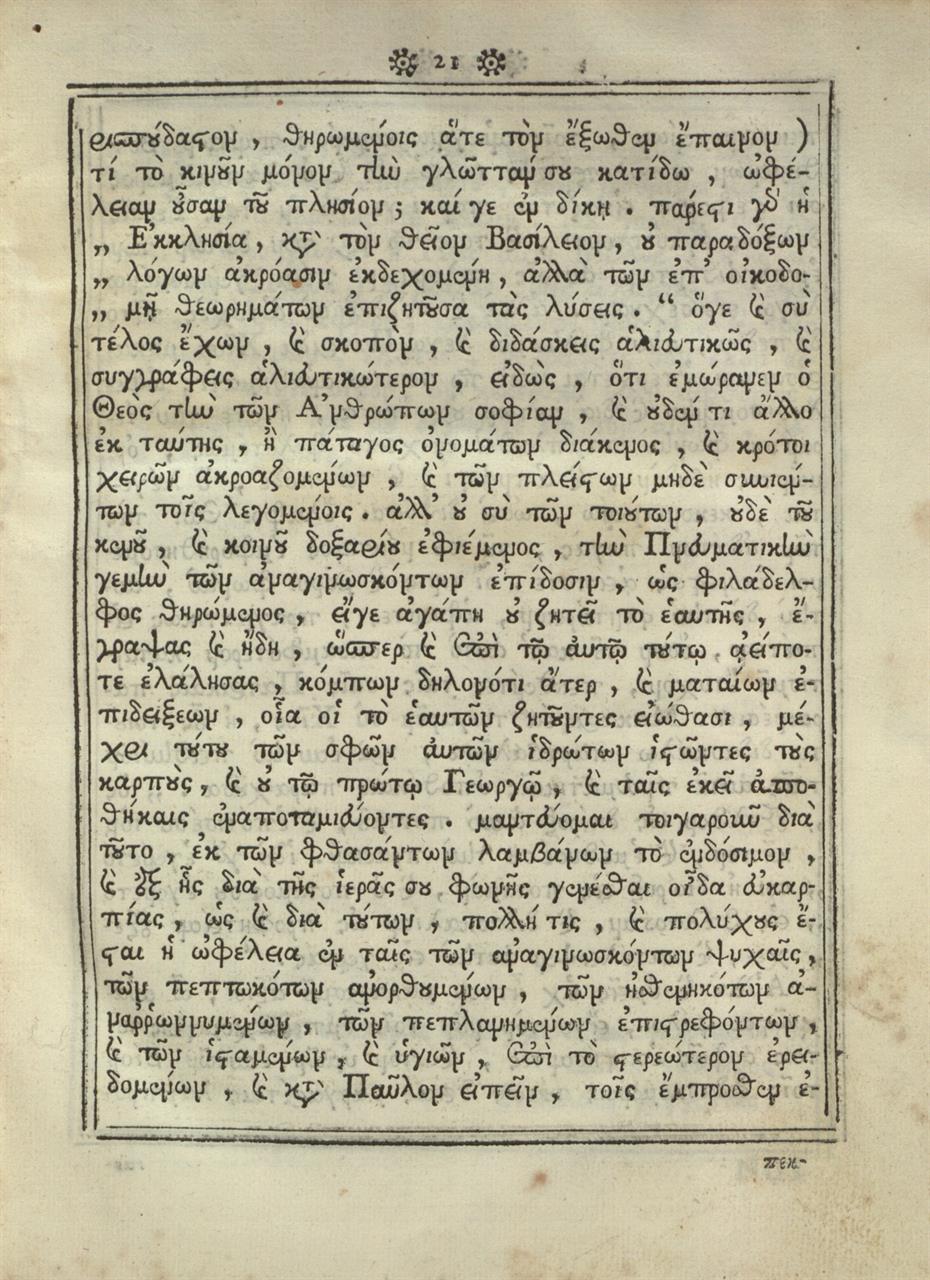 21
ρισπούδαστον, θηρωμένοις ἅτε τὸν ἔξωθεν ἔπαινον)
τί τὸ κινοῦν μόνον τὴν γλῶτταν σου κατίδω, ὠφέ-
λειαν οὖσαν τοῦ πλησίον; καί γε ἐν δίκῃ. πάρεστι γὰρ ἡ
„ Ἐκκλησία, κατὰ τὸν θεῖον Βασίλειον, οὐ παραδόξων
„ λόγων ἀκρόασιν ἐκδεχομένη, ἀλλὰ τῶν ἐπ' οἰκοδο-
„ μῇ θεωρημάτων ἐπιζητοῦσα τὰς λύσεις. “ ὅγε καὶ σὺ
τέλος ἔχων, καὶ σκοπὸν, καὶ διδάσκεις ἁλιευτικῶς, καὶ
συγγράφεις ἁλιευτικώτερον, εἰδὼς, ὅτι ἐμώρανεν ὁ
Θεὸς τὴν τῶν Ἀνθρώπων σοφίαν, καὶ οὐδέν τι ἄλλο
ἐκ ταύτης, ἢ πάταγος ὀνομάτων διάκενος, καὶ κρότοι
χειρῶν ἀκροαζομένων, καὶ τῶν πλείστων μηδὲ συνιέν-
των τοῖς λεγομένοις. ἀλλ' οὐ σὺ τῶν τοιούτων, οὐδὲ τοῦ
κενοῦ, καὶ κοινοῦ δοξαρίου ἐφιέμενος, τὴν Πνευματικὴν
γεμὴν τῶν ἀναγινωσκόντων ἐπίδοσιν, ὡς φιλάδελ-
φος θηρώμενος, εἴγε ἀγάπη οὐ ζητεῖ τὸ ἑαυτῆς, ἔ-
γραψας καὶ ἤδη, ὥσπερ καὶ ἐπὶ τῷ αὐτῷ τούτῳ ἀείπο-
τε ἐλάλησας, κόμπων δηλονότι ἄτερ, καὶ ματαίων ἐ-
πιδείξεων, οἷα οἱ τὸ ἑαυτῶν ζητοῦντες εἰώθασι, μέ-
χρι τούτου τῶν σφῶν αὐτῶν ἱδρώτων ἱστῶντες τοὺς
καρποὺς, καὶ οὐ τῷ πρώτῳ Γεωργῷ, καὶ ταῖς ἐκεῖ ἀπο-
θήκαις ἐναποταμιεύοντες. μαντεύομαι τοιγαροῦν διὰ
τοῦτο, ἐκ τῶν φθασάντων λαμβάνων τὸ ἐνδόσιμον,
καὶ ἐξ ἧς διὰ τῆς ἱερᾶς σου φωνῆς γενέσθαι οἶδα εὐκαρ-
πίας, ὡς καὶ διὰ τούτων, πολλή τις, καὶ πολύχους ἔ-
σται ἡ ὠφέλεια ἐν ταῖς τῶν ἀναγινωσκόντων ψυχαῖς,
τῶν πεπτωκότων ἀνορθουμένων, τῶν ἠσθενηκότων ἀ-
ναῤῥωννυμένων, τῶν πεπλανημένων ἐπιστρεφόντων,
καὶ τῶν ἱσταμένων, καὶ ὑγιῶν, ἐπὶ τὸ στερεώτερον ἐρει-
δομένων, καὶ κατὰ Παῦλον εἰπεῖν, τοῖς ἔμπροσθεν ἐ-
πεκ-